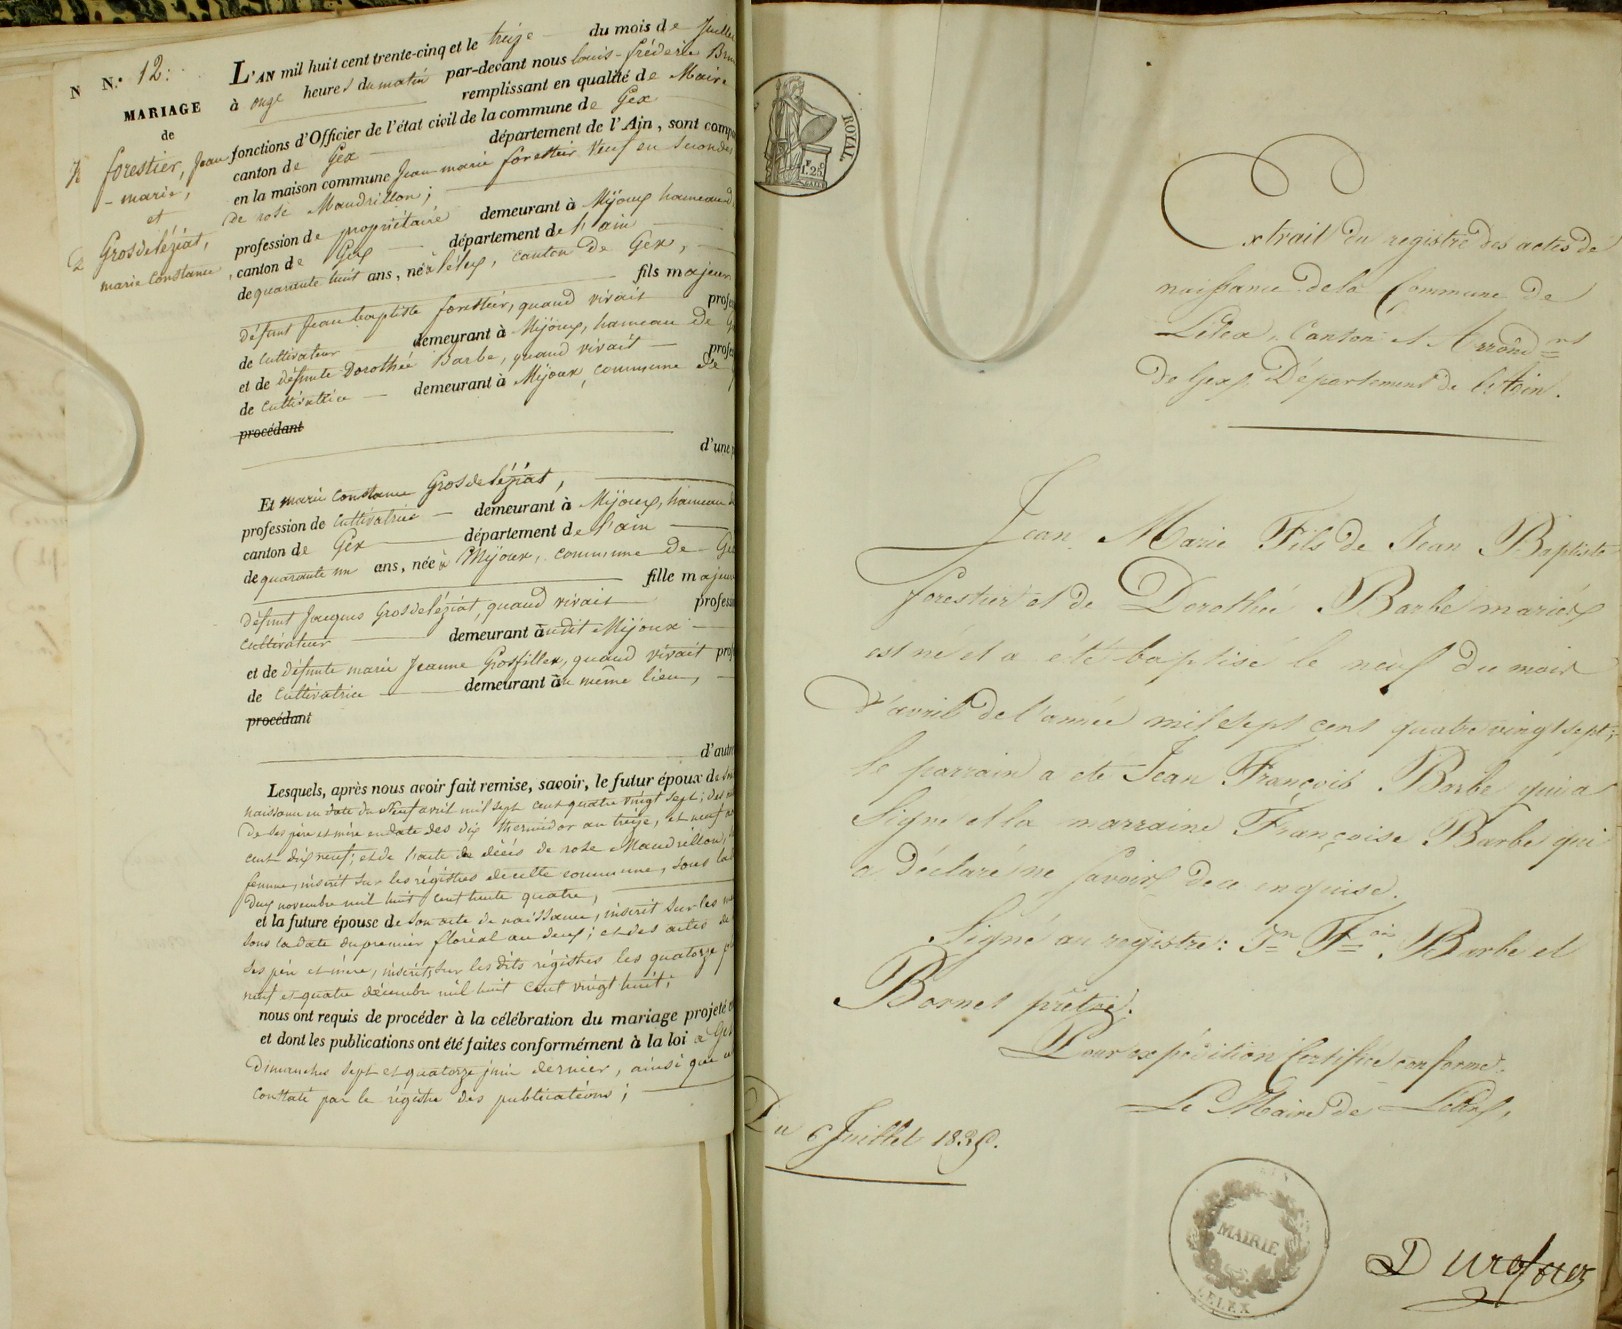 N N.° 12:
MARIAGE
de
forestier, Jean
- marie,
et
Grosdelégiat,
marie constance
L'AN mil huit cent trente-cinq et le treize du mois de Juillet
à onze heures du matin par-devant nous louis-fréderic
remplissant en qualité de Maire
fonctions d'Officier de l'état civil de la commune de Gex
canton de Gex département de l'Ain, sont
en la maison commune Jean-marie forestier Veuf en secondes
de rose Maudrillon;
profession de propriétaire demeurant à Mijoux hameau d
canton de Gex département de l'ain
de quarante huit ans, né à Lélex, canton de Gex,
fils majeur
défunt Jean baptiste forestier, quand vivait
de Cultivateur demeurant à Mijoux, hameau de
et de défunte Dorothée Barbe, quand vivait
de Cultivatrice demeurant à Mijoux, commune de
procédant
d'une
Et marie constance Grosdelégiat,
profession de Cultivatrice demeurant à Mijoux, hameau
canton de Gex département de l'ain
de quarante un ans, née à Mijoux, commune de
fille majeure
défunt Jacques Grosdelégiat, quand vivait
Cultivateur demeurant audit Mijoux
et de défunte marie Jeanne Grosfillex, quand vivait
de Cultivatrice demeurant au même lieu,
procédant
d'autre
Lesquels, après nous avoir fait remise, savoir, le futur époux de
naissance en date du Neuf avril mil sept cent quatre vingt sept; des
de ses père et mère en date des dix thermidor an treize, et neuf
cent dix neuf; et de l'acte de décès de rose Maudrillon,
femme, inscrit sur les régistres de cette commune, sous la
deux novembre mil huit cent trente quatre,
et la future épouse de son acte de naissance, inscrit sur les
sous la date du premier floréal an deux; et des actes de
ses père et mère, inscrits sur les dits régistres les quatorze
neuf et quatre décembre mil huit cent vingt huit;
nous ont requis de procéder à la célébration du mariage projeté
et dont les publications ont été faites conformément à la loi à Gex
Dimanches sept et quatorze juin dernier, ainsi que
constaté par le régistre des publications;
ROYAL.
1.25
Extrait du registre des actes de
naissance de la Commune de
Lélex, Canton et Arrond.nt
de Gex, Département de l'Ain.
Jean Marie Fils de Jean Baptiste
forestier et de Dorothée Barbe mariés
est né et a été baptisé le neuf du mois
d'avril de l'année mil sept cent quatre vingt sept;
le parrain a été Jean François Barbe qui a
Signé et la marraine Françoise Barbe qui
a déclaré ne savoir de ce enquise.
Signé au registre: Jn Fois Barbe et
Bornet prêtre.
Pour expédition Certifiée conforme.
Le Maire de Lélex,
Du 6 Juillet 1835.
MAIRIE
LELEX